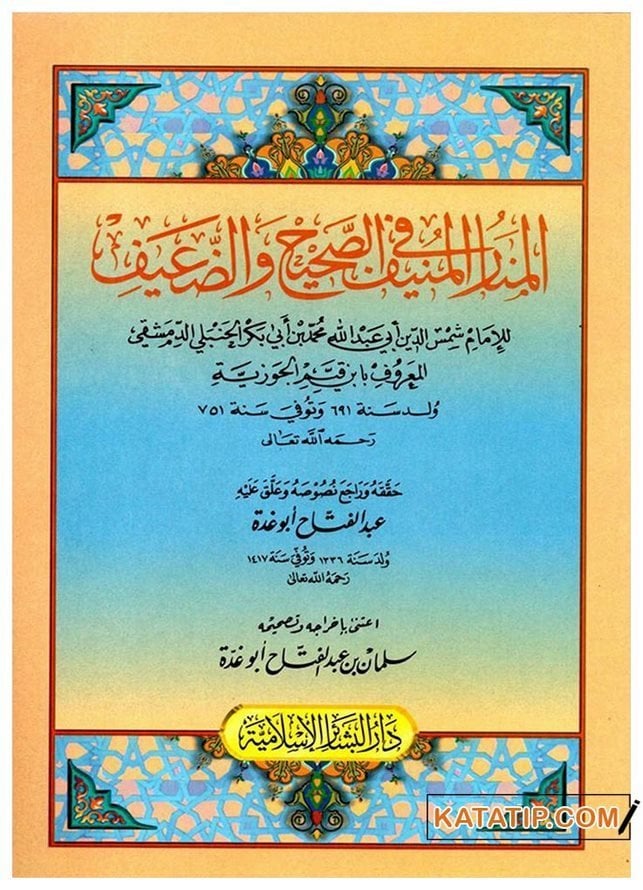 المنار المنيف في الصحيح والضعيف
للإمام شمس الدين أبي عبد الله محمد بن أبي بكر الحنبلي الدمشقي
المعروف بابن قيم الجوزية
ولد سنة ٦٩١ وتوفي سنة ٧٥١
رحمه الله تعالى
حققه وراجع نصوصه وعلق عليه
عبد الفتاح أبو غدة
ولد سنة ١٣٣٦ وتوفي سنة ١٤١٧
رحمه الله تعالى
اعتنى بإخراجه وتصحيحه
سلمان بن عبد الفتاح أبو غدة
دار البشائر الإسلامية
KATATIP.COM